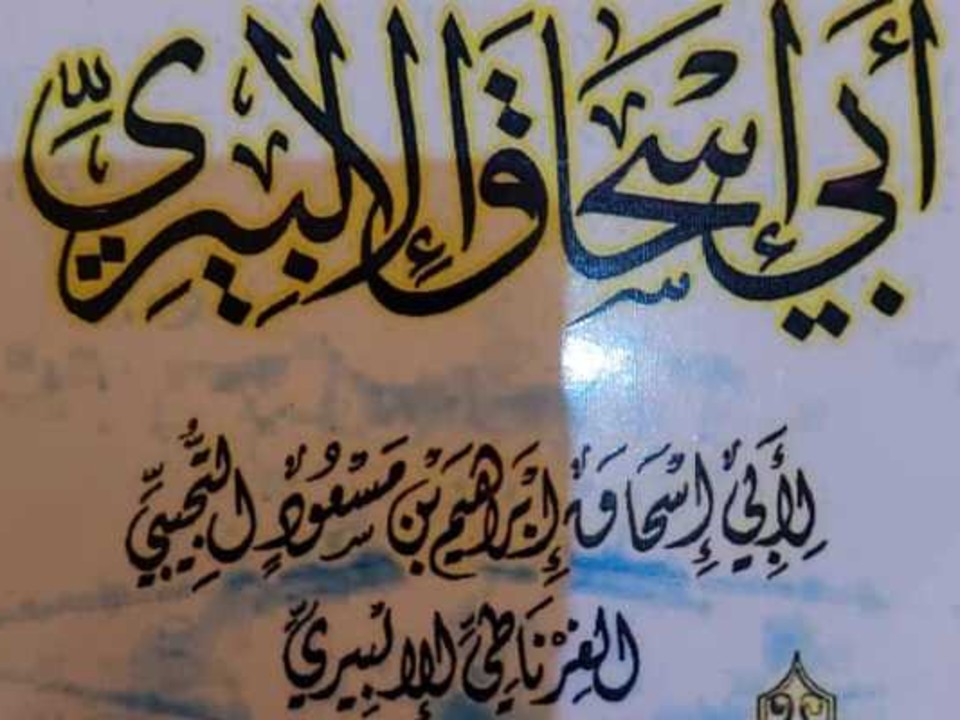 أبي إسحاق الإلبيري
لِأَبِي إِسْحَاقَ إِبْرَاهِيمَ بْنِ مَسْعُودٍ التُّجِيبِيِّ
الغَرْنَاطِيِّ الإِلْبِيرِيِّ